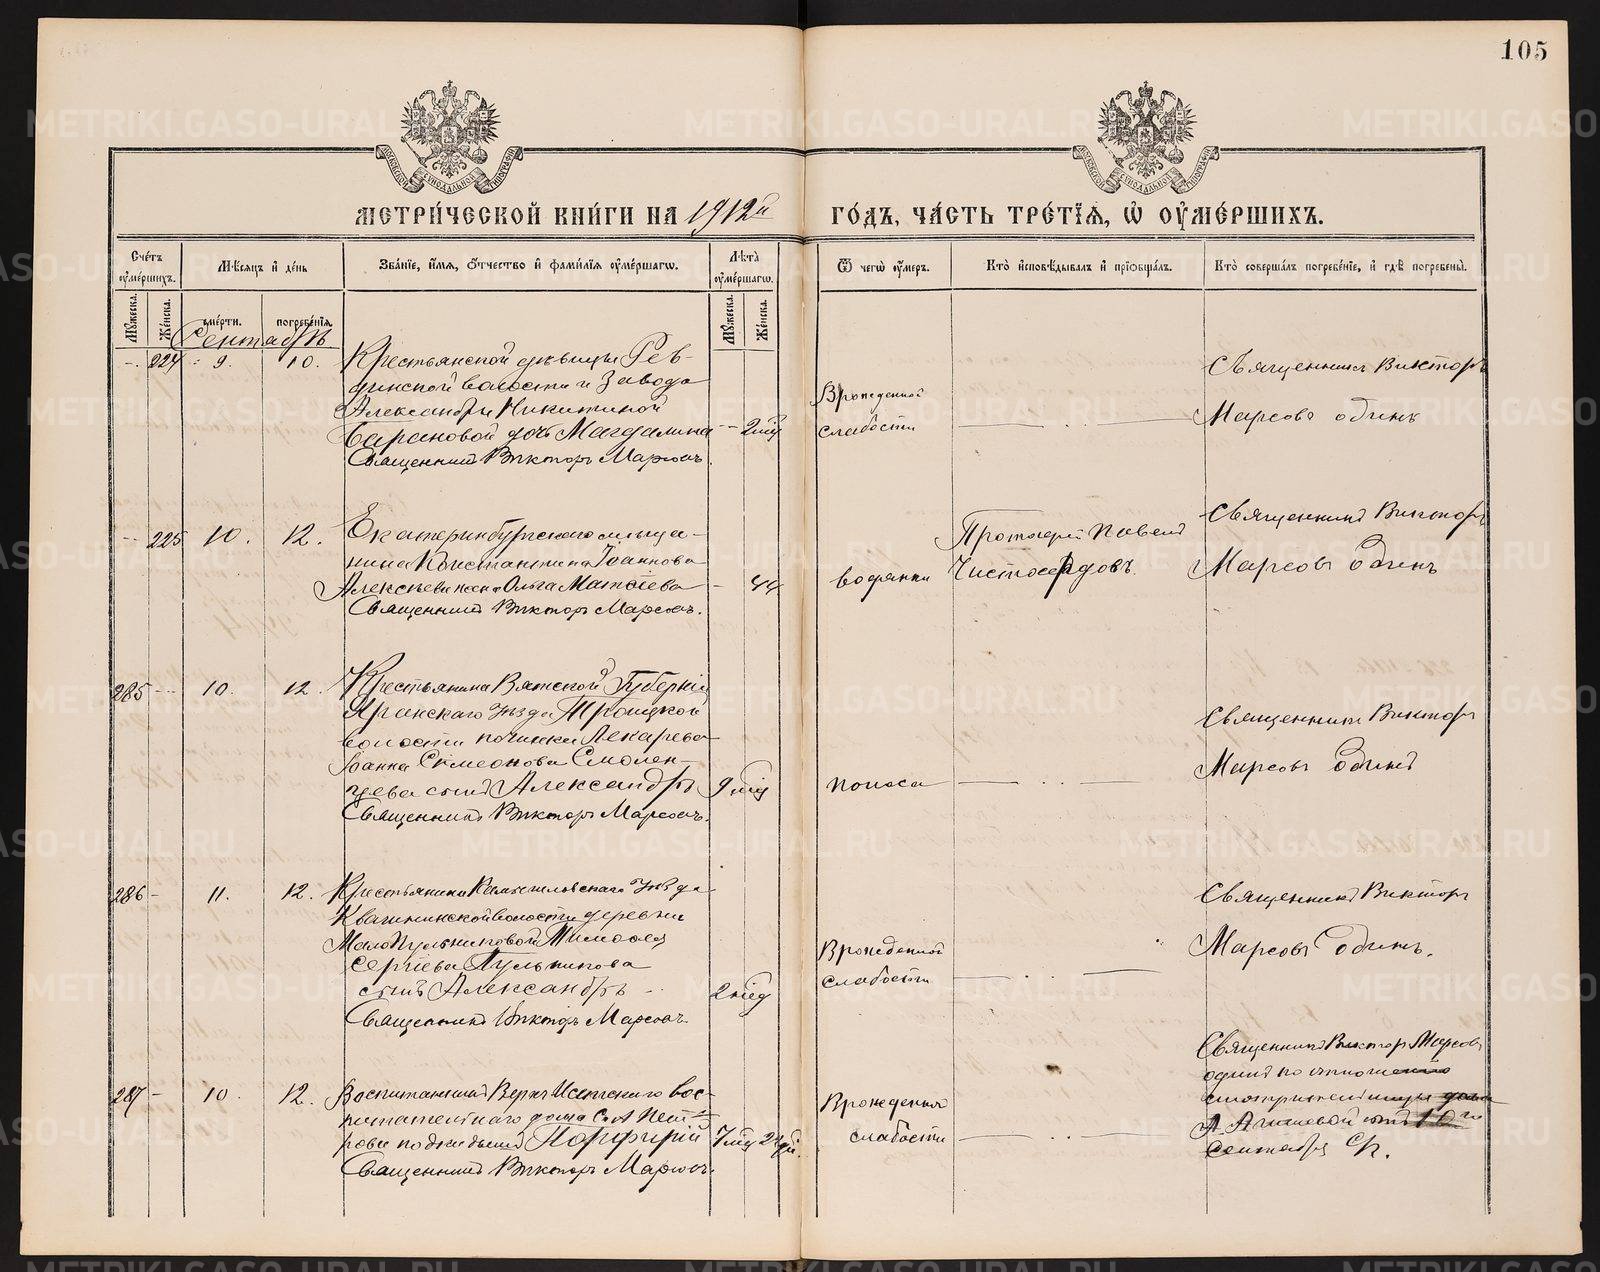 105
МЕТРИ́ЧЕСКОЙ КНИ́ГИ НА 1912й ГО́ДЪ, ЧА́СТЬ ТРЕ́ТІѦ, Ѡ҆ ОУ҆МЕ́РШИХЪ.
Сче́тъ оу҆ме́ршихъ.
Мѣ́сяцъ и҆ де́нь
Зва́нїе, и҆́мѧ, ѻ҆́тчество и҆ фами́лїѧ оу҆ме́ршагѡ.
Лѣ́та оу҆ме́ршагѡ.
Ѿ чегѡ̀ оу҆́меръ.
Кто̀ и҆сповѣ́дывалъ и҆ прїѡбща́лъ.
Кто̀ соверша́лъ погребе́нїе, и҆ гдѣ̀ погребены̀.
Мꙋ́жеска.
Же́нска.
сме́рти.
погребе́нїѧ.
Мꙋ́жеска.
Же́нска.
Сентябрь
224 9. 10. Крестьянской дѣвицы Рев-
динской волости и завода
Александры Никитиной
Барановой дочь Магдалина
Священникъ Викторъ Марсовъ.
2 мѣс
Врожденной
слабости
Священникъ Викторъ
Марсовъ одинъ
225 10. 12. Екатеринбургскаго мѣща-
нина Константина Іоаннова
Алексѣева жена Ольга Матѳіева
Священникъ Викторъ Марсовъ.
44
водянки
Протоіерей Павелъ
Чистосердовъ
Священникъ Викторъ
Марсовъ одинъ
285 10. 12. Крестьянина Вятской Губерніи
Яранскаго уѣзда Троицкой
волости починки Лекарева
Іоанна Симеонова Смолен-
цева сынъ Александръ
Священникъ Викторъ Марсовъ.
9 мѣс
поноса
Священникъ Викторъ
Марсовъ одинъ
286 11. 12. Крестьянина Камышловскаго уѣзда
Квашнинской волости деревни
Мало Пульниковой Тимоѳея
Сергіева Пульникова
сынъ Александръ
Священникъ Викторъ Марсовъ
2 нед
Врожденной
слабости
Священникъ Викторъ
Марсовъ одинъ.
287 10. 12. Воспитанникъ Верхъ Исетскаго вос-
питательнаго дома
подкидышъ Порфирій
Священникъ Викторъ Марсовъ.
7 мѣс 24 дн.
Врожденной
слабости
Священникъ Викторъ Марсовъ
одинъ по отношенію
смотрительницы дома
отъ 10го
Сентября
METRIKI.GASO-URAL.RU